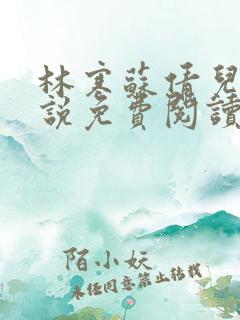 林寒蘇倩兒
說免費閱讀
陌小妖
未任同意禁止转载